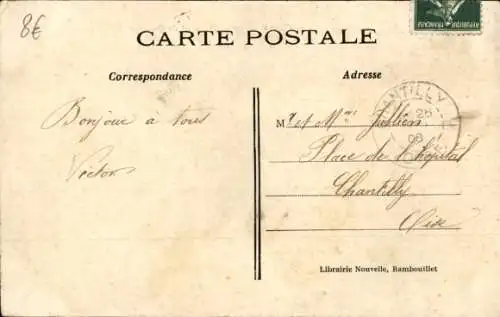 8€
CARTE POSTALE
Correspondance
Adresse
Bonjour à tous
Victor
Mr et Mme Jullien
Place de l'hôpital
Chantilly
Oise
ANTILLY
26
08
Librairie Nouvelle, Rambouillet